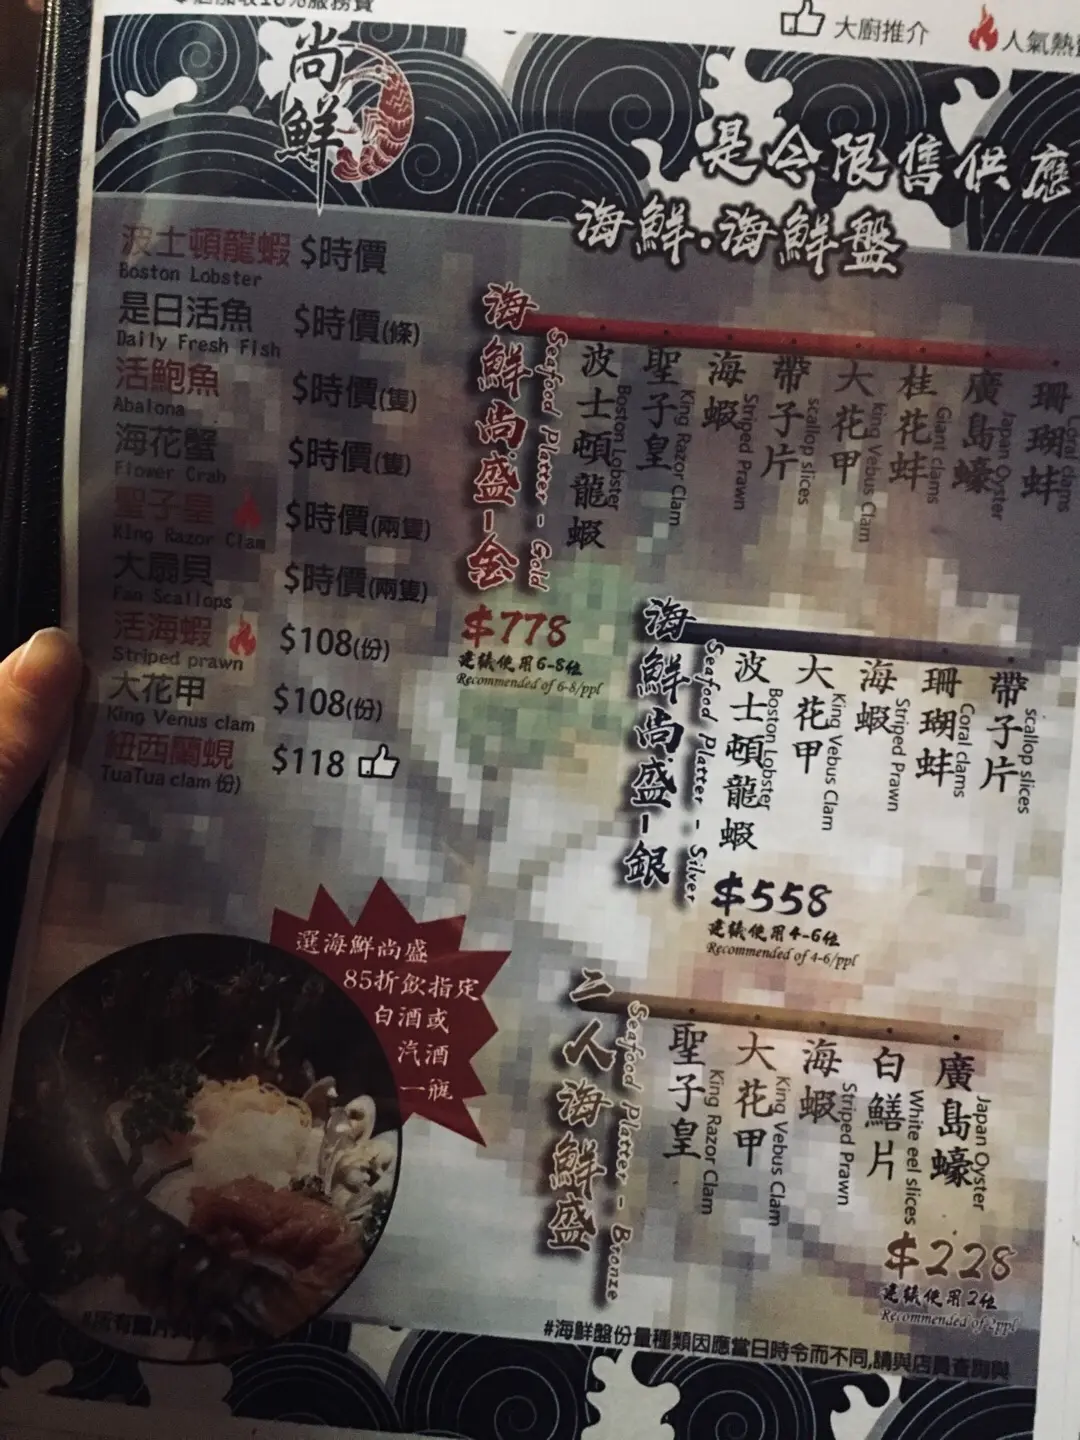 大廚推介
人氣熱
尚鮮
是令限售供應
海鮮.海鮮盤
波士頓龍蝦 $時價
Boston Lobster
是日活魚 $時價(條)
Daily Fresh Fish
活鮑魚 $時價(隻)
Abalona
海花蟹 $時價(隻)
Flower Crab
聖子皇 $時價(兩隻)
King Razor Clam
大扇貝 $時價(兩隻)
Fan Scallops
活海蝦 $108(份)
Striped prawn
大花甲 $108(份)
King Venus clam
紐西蘭蜆 $118
TuaTua clam 份)
海鮮尚盛-金
Seafood Platter - Gold
波士頓龍蝦
Boston Lobster
聖子皇
King Razor Clam
海蝦
Striped Prawn
帶子片
scallop slices
大花甲
king Vebus Clam
桂花蚌
Giant clams
廣島蠔
Japan Oyster
珊瑚蚌
Coral clams
$778
建議使用6-8位
Recommended of 6-8/ppl
海鮮尚盛-銀
Seafood Platter - Silver
波士頓龍蝦
Boston Lobster
大花甲
King Vebus Clam
海蝦
Striped Prawn
珊瑚蚌
Coral clams
帶子片
scallop slices
$558
建議使用4-6位
Recommended of 4-6/ppl
選海鮮尚盛
85折飲指定
白酒或
汽酒
一瓶
二人海鮮盛
Seafood Platter - Bronze
聖子皇
King Razor Clam
大花甲
King Vebus Clam
海蝦
Striped Prawn
白鱔片
White eel slices
廣島蠔
Japan Oyster
$228
建議使用2位
Recommended of 2ppl
#海鮮盤份量種類因應當日時令而不同,請與店員查詢